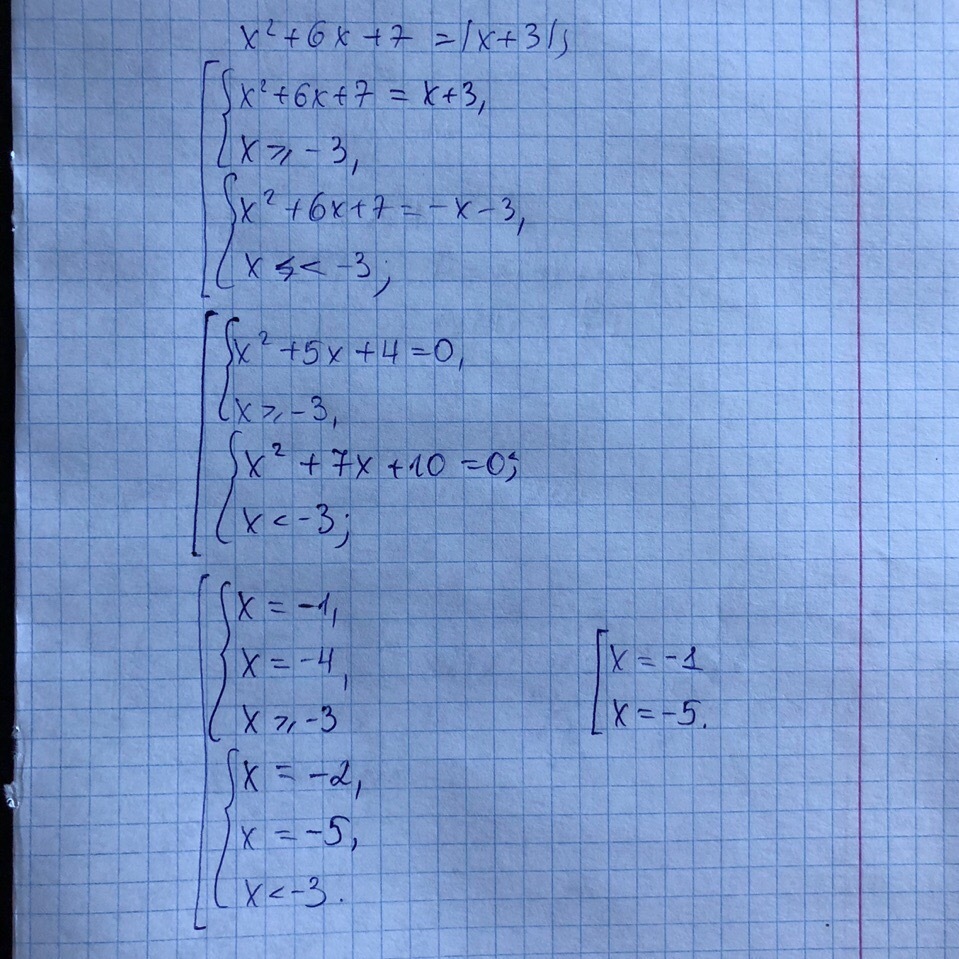 x² + 6x + 7 = |x + 3|;
x² + 6x + 7 = x + 3,
x ⩾ -3,
x² + 6x + 7 = -x - 3,
x < -3;
x² + 5x + 4 = 0,
x ⩾ -3,
x² + 7x + 10 = 0;
x < -3;
x = -1,
x = -4,
x ⩾ -3
x = -2,
x = -5,
x < -3.
x = -1
x = -5.